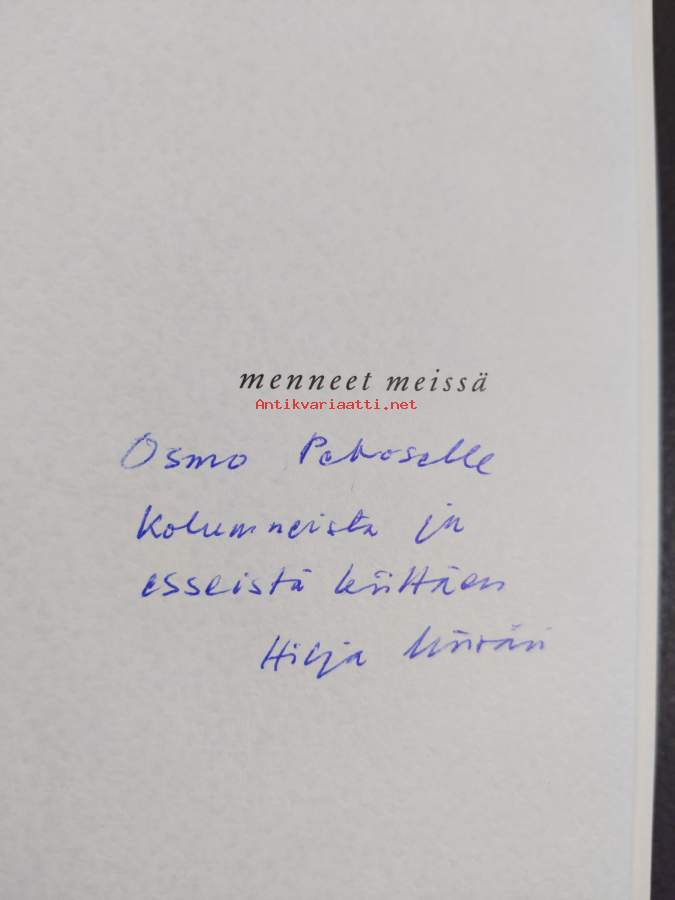 menneet meissä
Antikvariaatti.net
Osmo Pekoselle
kolumneista ja
esseistä kiittäen
Hilja Mörsäri